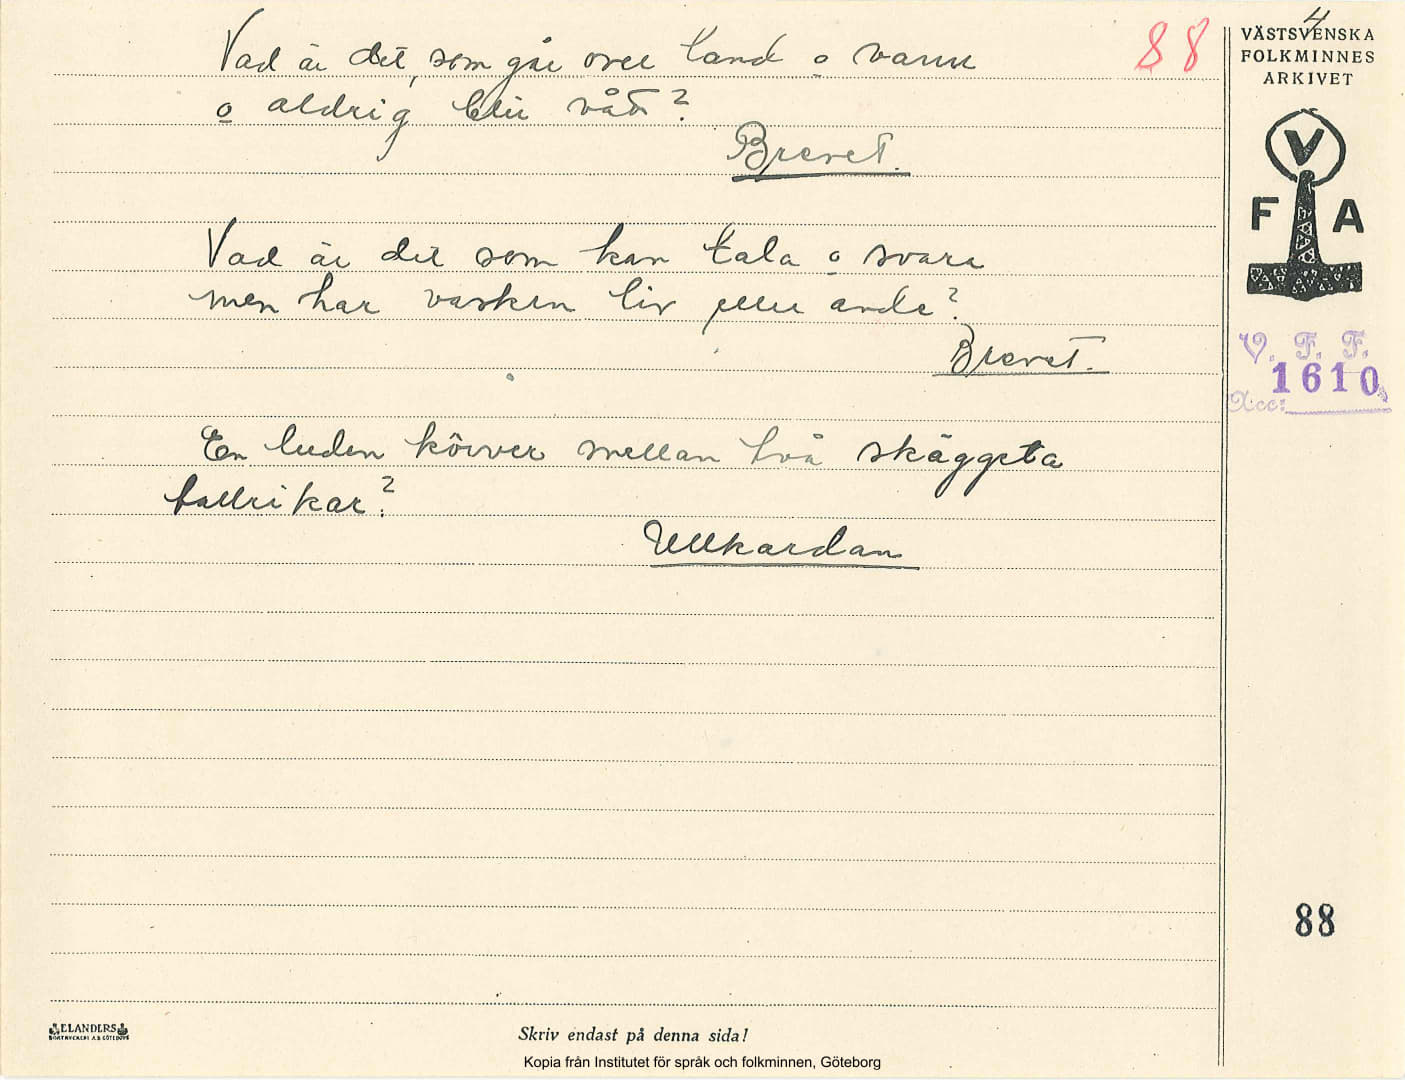 Vad är det, som går over land o vann
o aldrig blir våt?
Brevet.
Vad är det som kan tala o svara
men har varken liv eller ande?
Brevet.
En luden körver mellan två skäggeta
tallrikar?
Ullkardan
88
4
VÄSTSVENSKA
FOLKMINNES
ARKIVET
V
F A
V. F. F.
1610
Acc:
88
ELANDERS
BOKTRYCKERI A.B. GÖTEBORG
Skriv endast på denna sida!
Kopia från Institutet för språk och folkminnen, Göteborg